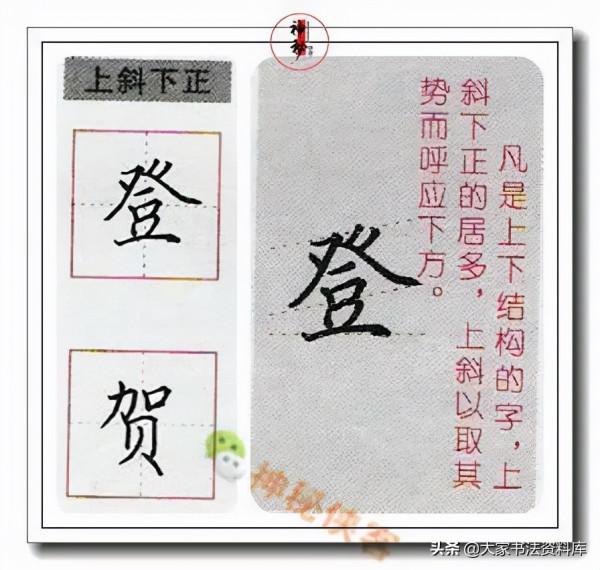 神秘
上斜下正
登
贺
登
凡是上下结构的字，上
斜下正的居多，上斜以取其
势而呼应下方。
神秘侠客
头条@大家书法资料库